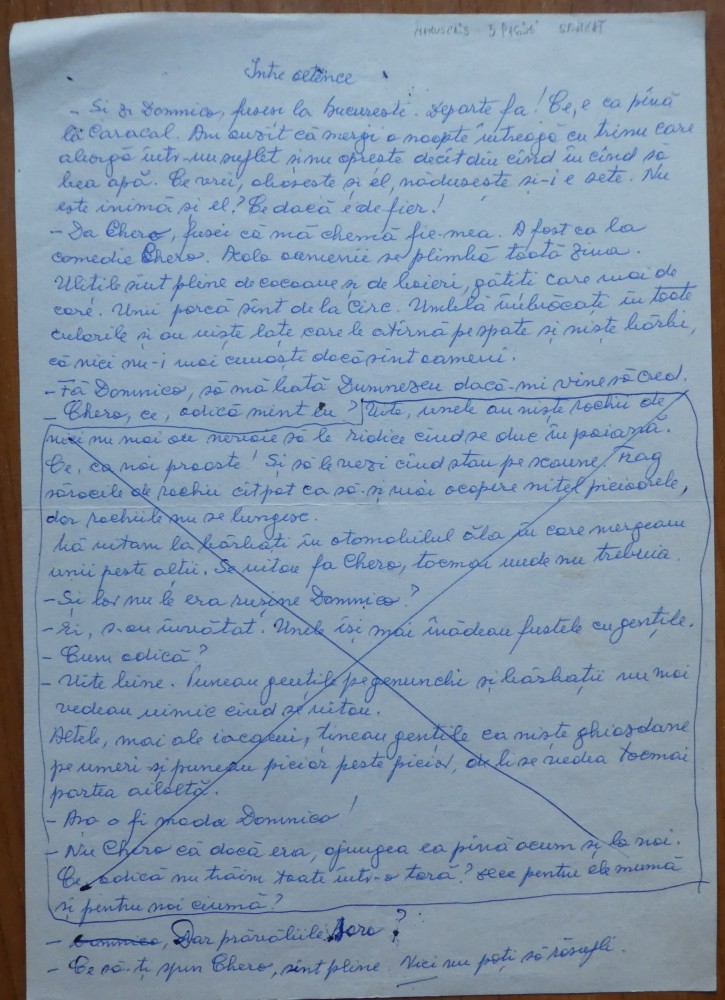 MANUSCRIS 3 PAGINI SEMNAT
Între oltence
- Și zi Domnico, fuseși la București. Departe fa! Ce, e ca pînă
la Caracal. Am auzit că mergi o noapte întreagă cu trinu care
aleargă într-un suflet și nu oprește decît din cînd în cînd să
bea apă. Ce vrei, obosește și el, nădușește și-i e sete. Nu
este inimă și el? Ce dacă e de fier!
- Da Chero, fusei că mă chemă fie-mea. A fost ca la
comedie Chero. Acolo oamenii se plimbă toată ziua.
Ulițile sînt pline de cocoane și de boieri, gătiți care mai de
care. Unii parcă sînt de la circ. Umblă îmbrăcați în toate
culorile și au niște late care le atîrnă pe spate și niște bărbi,
că nici nu-i mai cunoști dacă sînt oameni.
- Fă Domnico, să mă bată Dumnezeu dacă-mi vine să cred.
- Chero, ce, adică mint eu? Uite, unele au niște rochii de
nici nu mai au nevoie să le ridice cînd se duc în poiană.
Ce, ca noi proaste! Și să le vezi cînd stau pe scaune. Trag
săracile de rochii cît pot ca să-și mai acopere nițel picioarele,
dar rochiile nu se lungesc.
Mă uitam la bărbați în otomobilul ăla în care mergeam
unii peste alții. Se uitau fa Chero, tocmai unde nu trebuia.
- Și lor nu le era rușine Domnico?
- Ei, s-au învățat. Unele își mai înădeau fustele cu gențile.
- Cum adică?
- Uite bine. Puneau gențile pe genunchi și bărbații nu mai
vedeau nimic cînd se uitau.
Altele, mai ale iacacui, țineau gențile ca niște ghiozdane
pe umeri și puneau picior peste picior, de li se vedea tocmai
partea ailaltă.
- Așa o fi moda Domnico!
- Nu Chero că dacă era, ajungea ea pînă acum și la noi.
Ce, adică nu trăim toate într-o țară? Zece pentru ele mumă
și pentru noi ciumă?
- Domnico, Dar prăvăliile, soro?
- Ce să-ți spun Chero, sînt pline. Nici nu poți să răsufli.